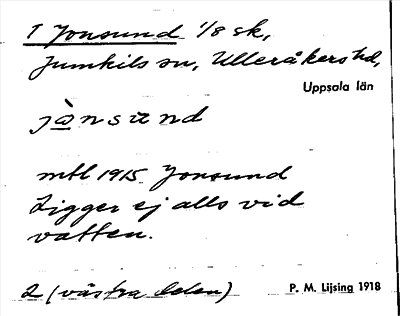 1 Jonsund 1/8 sk,
Jumkils sn, Ulleråkers hd,
Uppsala län
jànsund
mtl 1915 Jonsund
Ligger ej alls vid
vatten.
2 (västra delen)
P. M. Lijsing 1918